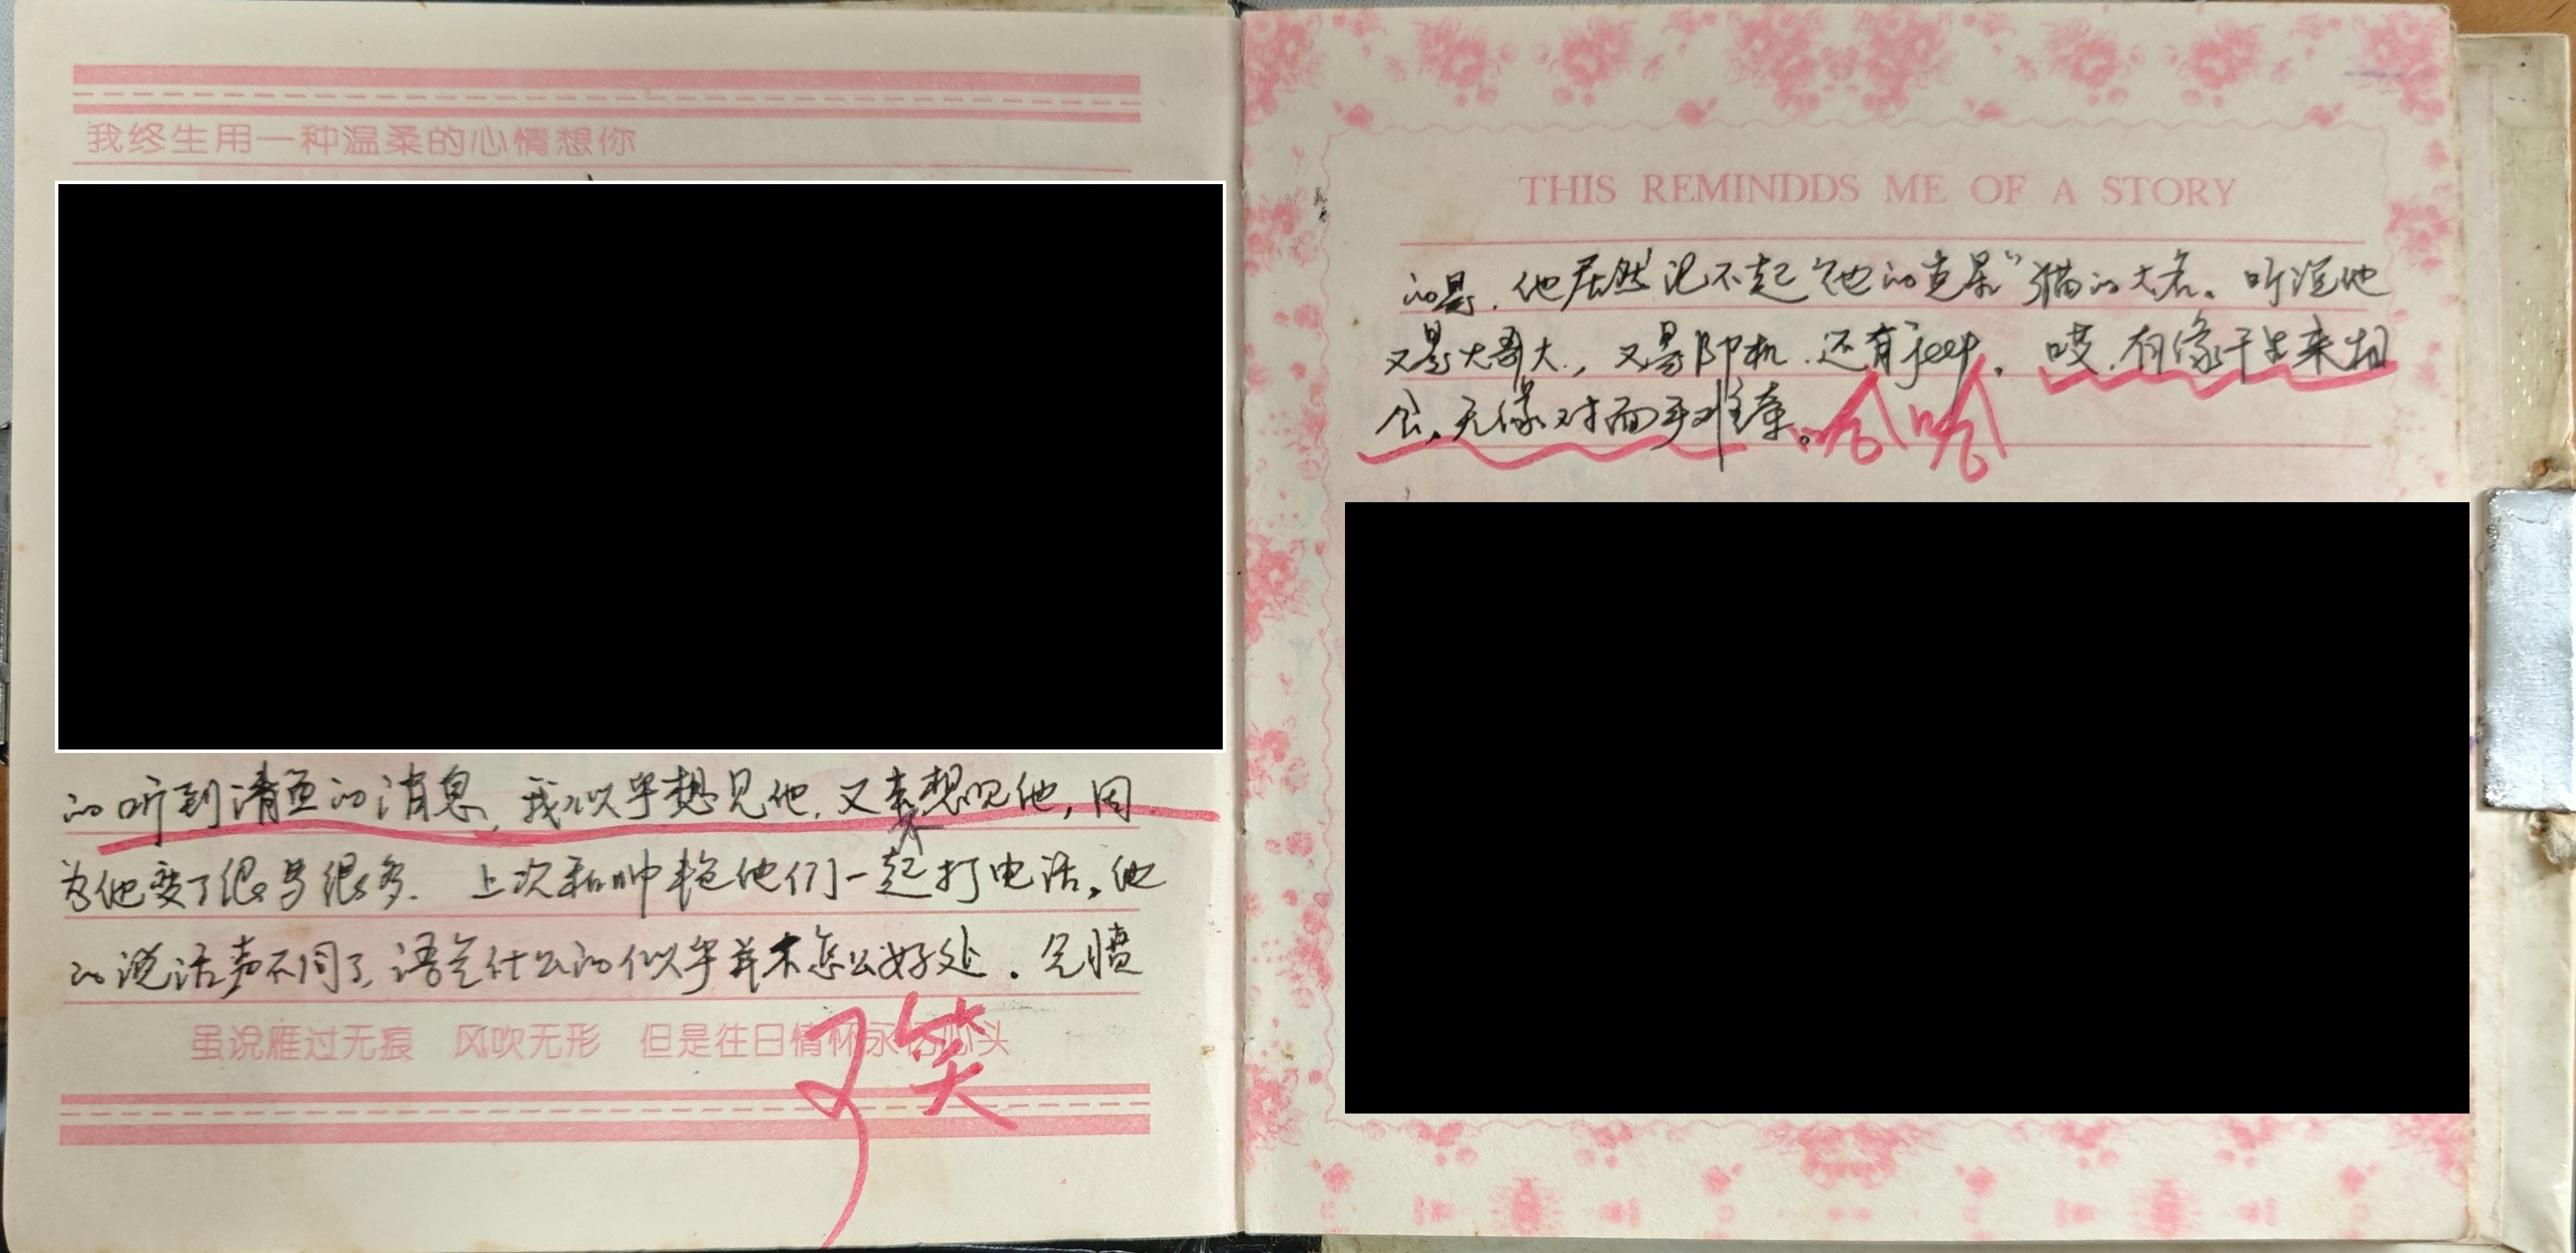 我终生用一种温柔的心情想你
的听到清鱼的消息，我似乎想见他，又未想见他，因
为他变了很多很多．上次和帅艳他们一起打电话，他
的说话声不同了，语气什么的似乎并未怎么好处．
虽说雁过无痕 风吹无形 但是往日情怀永 心头
笑
THIS REMINDDS ME OF A STORY
的是，他居然记不起“他的克星”猫的大名。听说他
又是大哥大，又是BP机．还有jeep，哎，有缘千里来相
会，无缘对面手难牵。哈哈